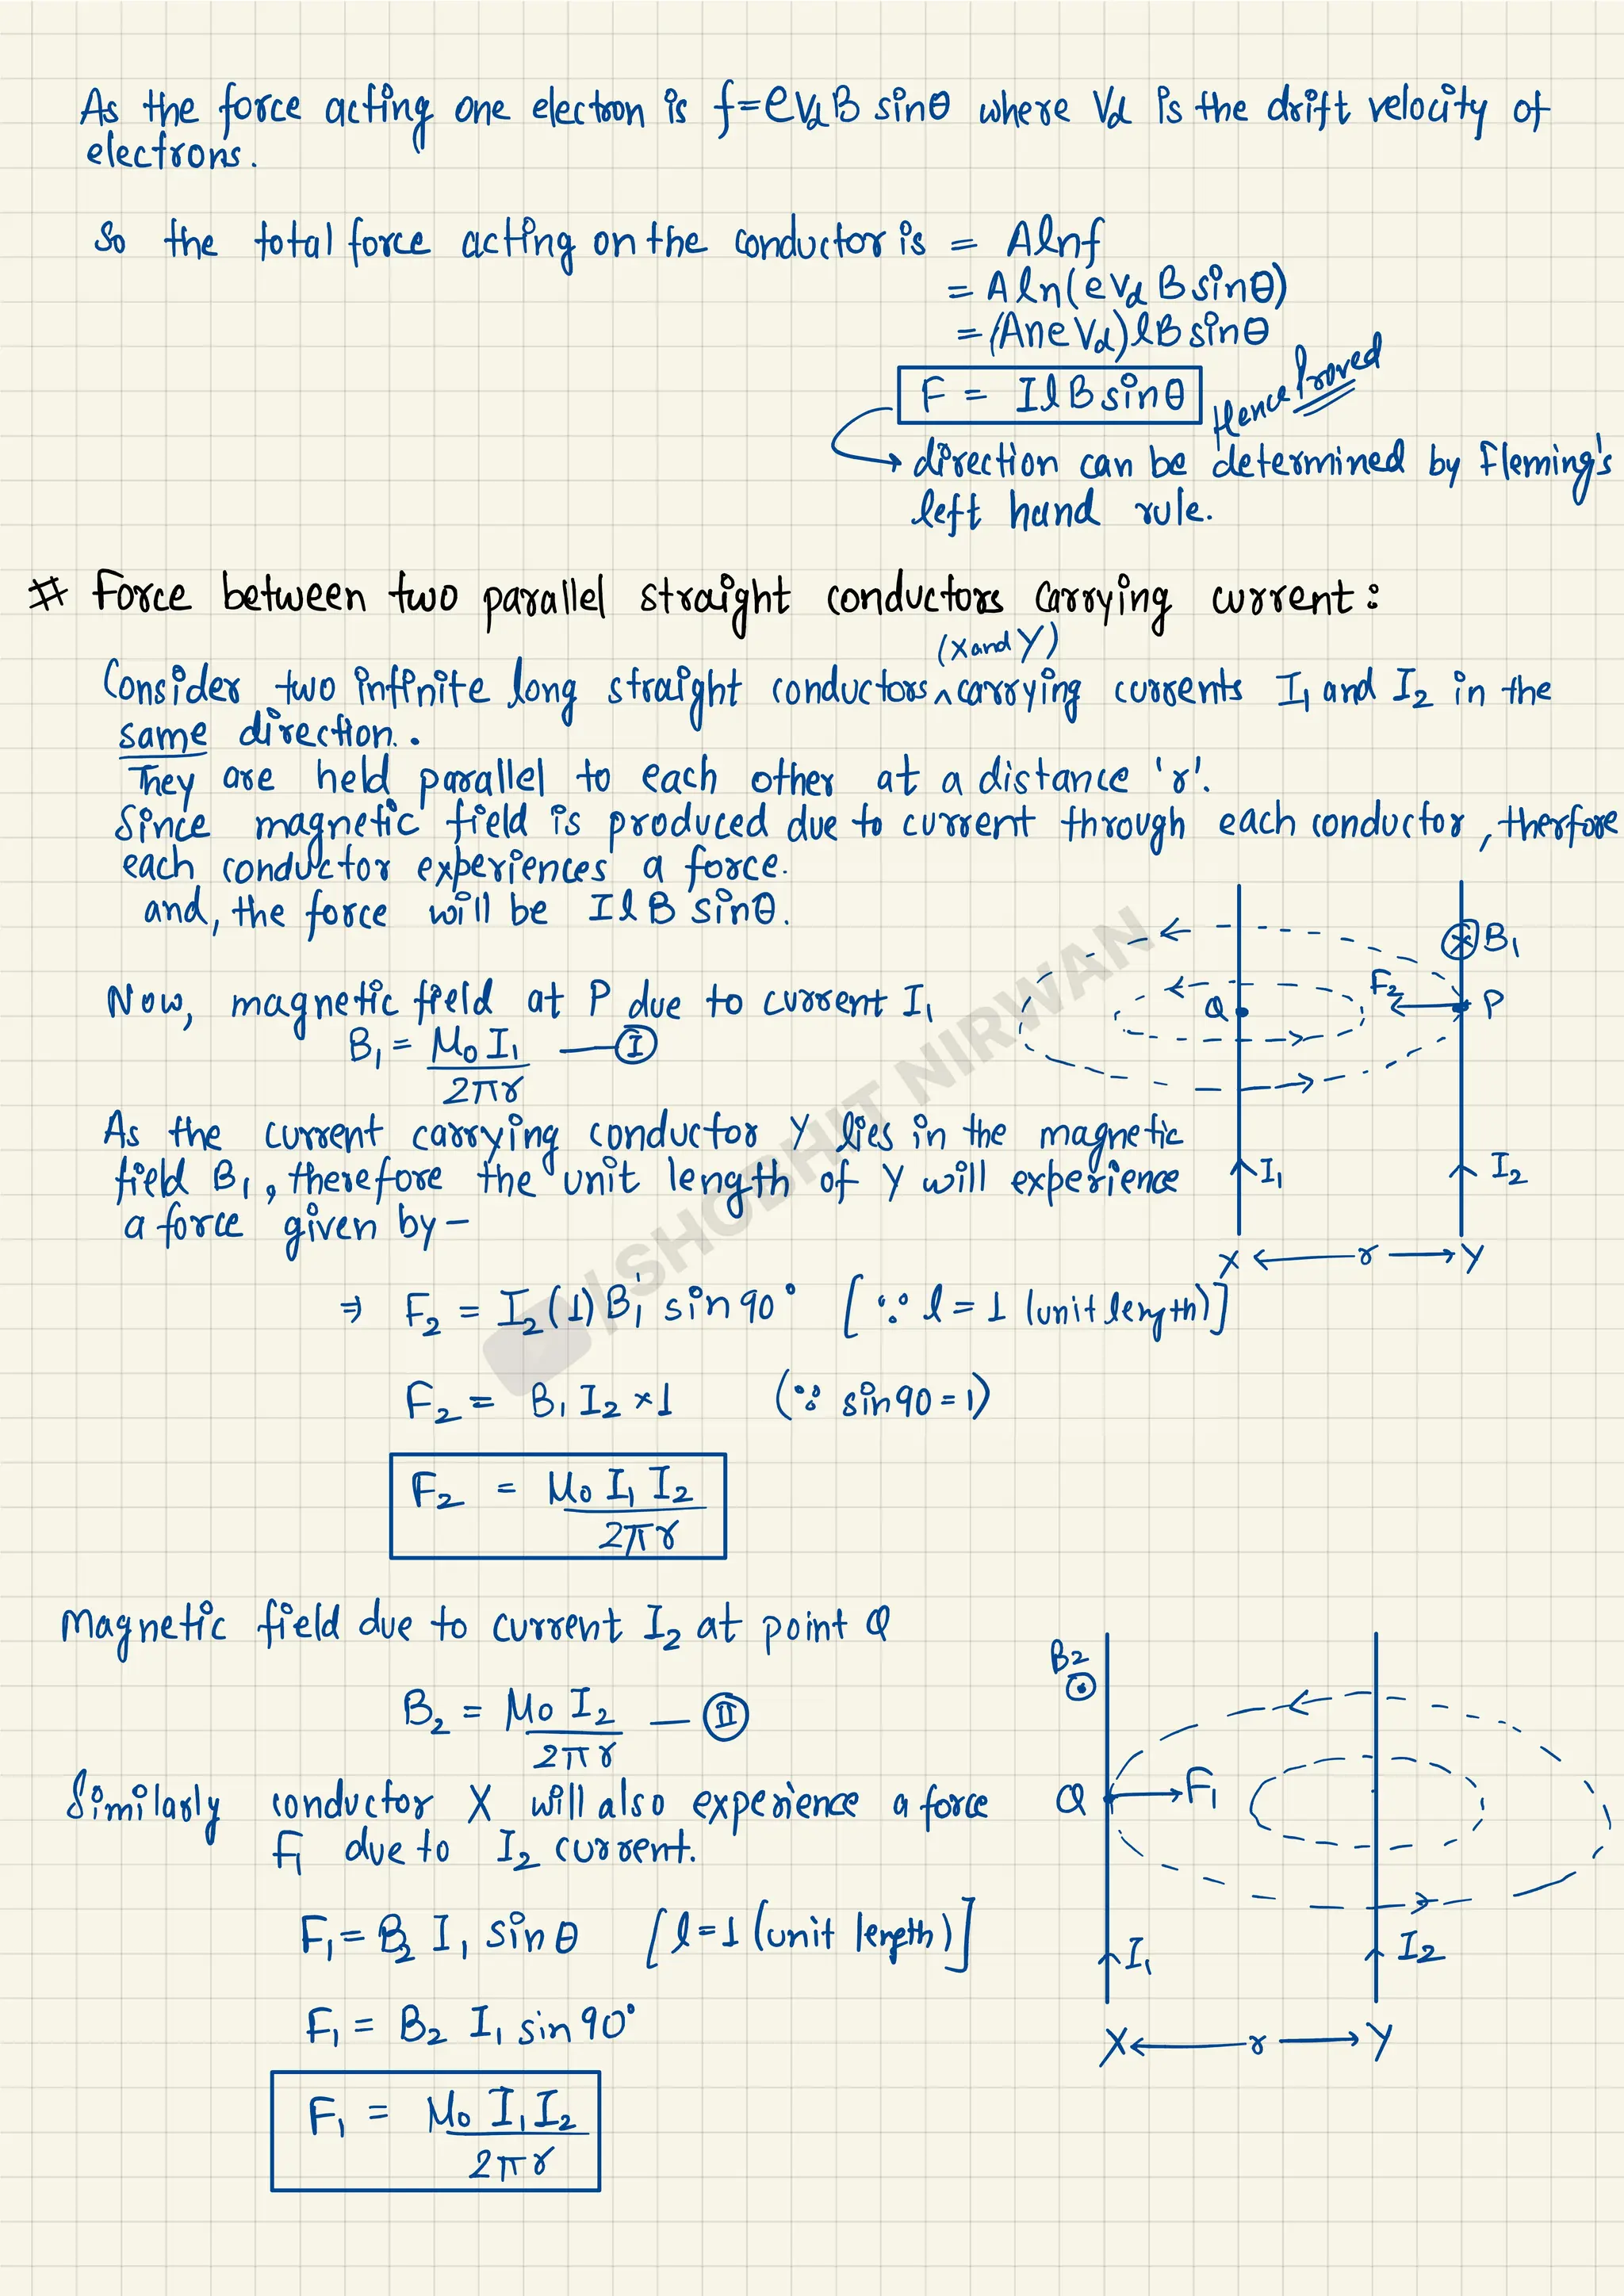 As the force acting one electron is f=eVdB sinθ where Vd is the drift velocity of
electrons.
So the total force acting on the conductor is = Alnf
= Aln(eVd B sinθ)
= (AneVd)lB sinθ
F = IlB sinθ
Hence Proved
direction can be determined by Fleming's
left hand rule.
# Force between two parallel straight conductors carrying current:
(X and Y)
Consider two infinite long straight conductors ^ carrying currents I₁ and I₂ in the
same direction.
They are held parallel to each other at a distance 'r'.
Since magnetic field is produced due to current through each conductor, therfore
each conductor experiences a force.
and, the force will be IlB sinθ.
Now, magnetic field at P due to current I₁
B₁ = μ₀ I₁ — (I)
2πr
As the current carrying conductor Y lies in the magnetic
field B₁, therefore the unit length of Y will experience
a force given by –
B₁
F₂
Q
P
I₁
I₂
X ← r → Y
⇒ F₂ = I₂(1)B₁ sin90° [∵ l = 1 (unit length)]
F₂ = B₁ I₂ × 1 (∵ sin90 = 1)
F₂ = μ₀ I₁ I₂
2πr
/ SHOBHIT NIRWAN
Magnetic field due to current I₂ at point Q
B₂ = μ₀ I₂ — (II)
2πr
Similarly conductor X will also experience a force
F₁ due to I₂ current.
F₁ = B₂ I₁ sinθ [l=1 (unit length)]
F₁ = B₂ I₁ sin90°
F₁ = μ₀ I₁ I₂
2πr
B₂
Q
F₁
I₁
I₂
X ← r → Y